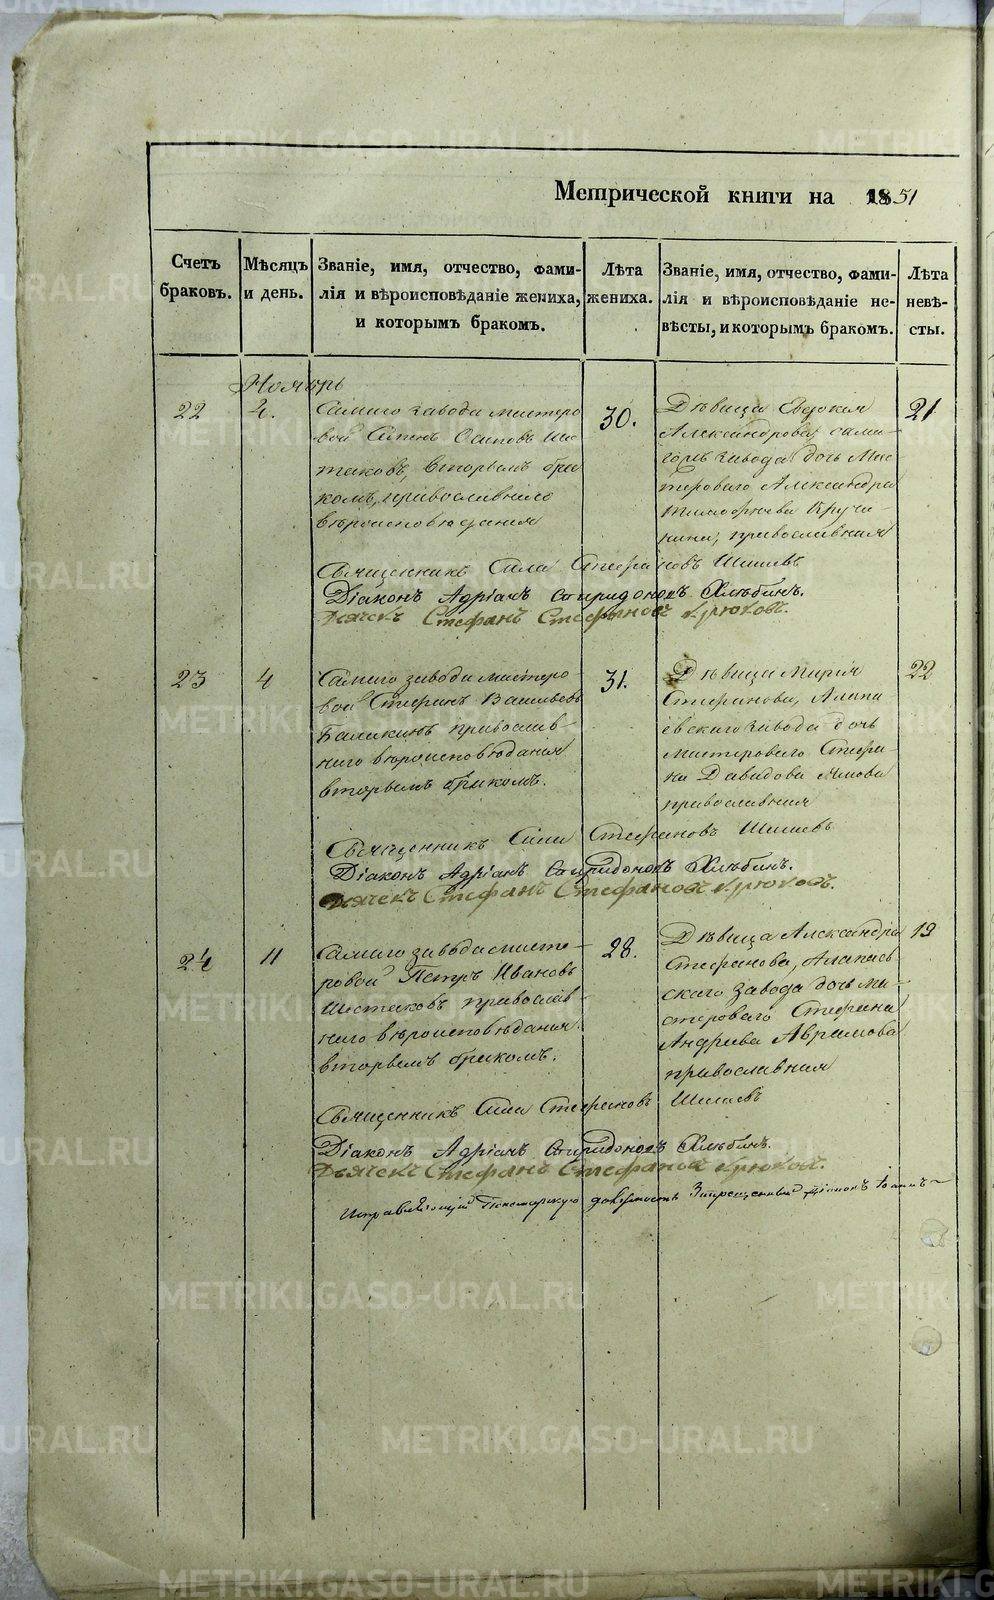 Метрической книги на 1851
Счетъ браковъ.
Мѣсяцъ и день.
Званіе, имя, отчество, фами-
лія и вѣроисповѣданіе жениха,
и которымъ бракомъ.
Лѣта жениха.
Званіе, имя, отчество, фами-
лія и вѣроисповѣданіе не-
вѣсты, и которымъ бракомъ.
Лѣта невѣ-
сты.
Ноябрь
22
4.
Самаго завода мастеро
вой Осиповъ Ше
стаковъ, вторымъ бра
комъ, православнаго
вѣроисповѣданія
30.
Дѣвица Евдокія
Александрова, сама-
гожъ завода дочь Мас
тероваго Александра
Тимофѣева Круча-
нина, православная
21
Священникъ Сила Стефановъ Шишевъ
Діаконъ Адріанъ Спиридоновъ Хлѣбинъ.
Дьячекъ Стефанъ Стефановъ Крюковъ.
23
4
Самаго завода мастеро-
вой Стефанъ Васильевъ
Балакинъ православ
наго вѣроисповѣданія
вторымъ бракомъ.
31.
Дѣвица Марія
Стефанова, Алапа-
евскаго завода дочь
мастероваго Стефа-
на Давидова
православная
22
Священникъ Сила Стефановъ Шишевъ
Діаконъ Адріанъ Спиридоновъ Хлѣбинъ.
Дьячекъ Стефанъ Стефановъ Крюковъ.
24
11
Самаго завода масте-
ровой Петръ Ивановъ
Шестаковъ православ-
наго вѣроисповѣданія.
вторымъ бракомъ.
28.
Дѣвица Александра
Стефанова, Алапаев-
скаго завода дочь ма-
стероваго Стефана
Андрѣева Аврамова
православная
19
Священникъ Сила Стефановъ Шишевъ
Діаконъ Адріанъ Спиридоновъ Хлѣбинъ.
Дьячекъ Стефанъ Стефановъ Крюковъ.
Исправляющій Пономарскую должность Запрещенный Діаконъ Іоаннъ
METRIKI.GASO-URAL.RU